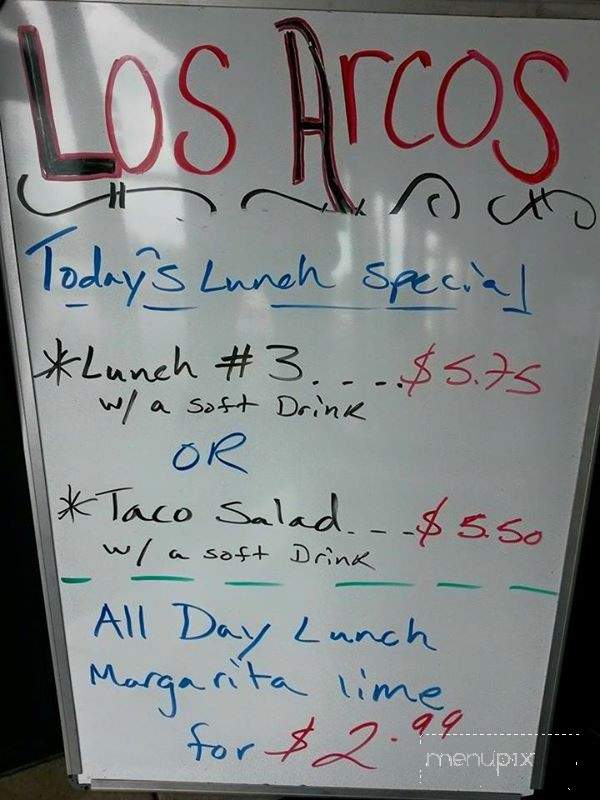 Los Arcos
Today's Lunch Special
*Lunch #3.....$5.75
w/ a soft Drink
OR
*Taco Salad....$5.50
w/ a soft Drink
All Day Lunch
Margarita lime
for $2.99
menupix